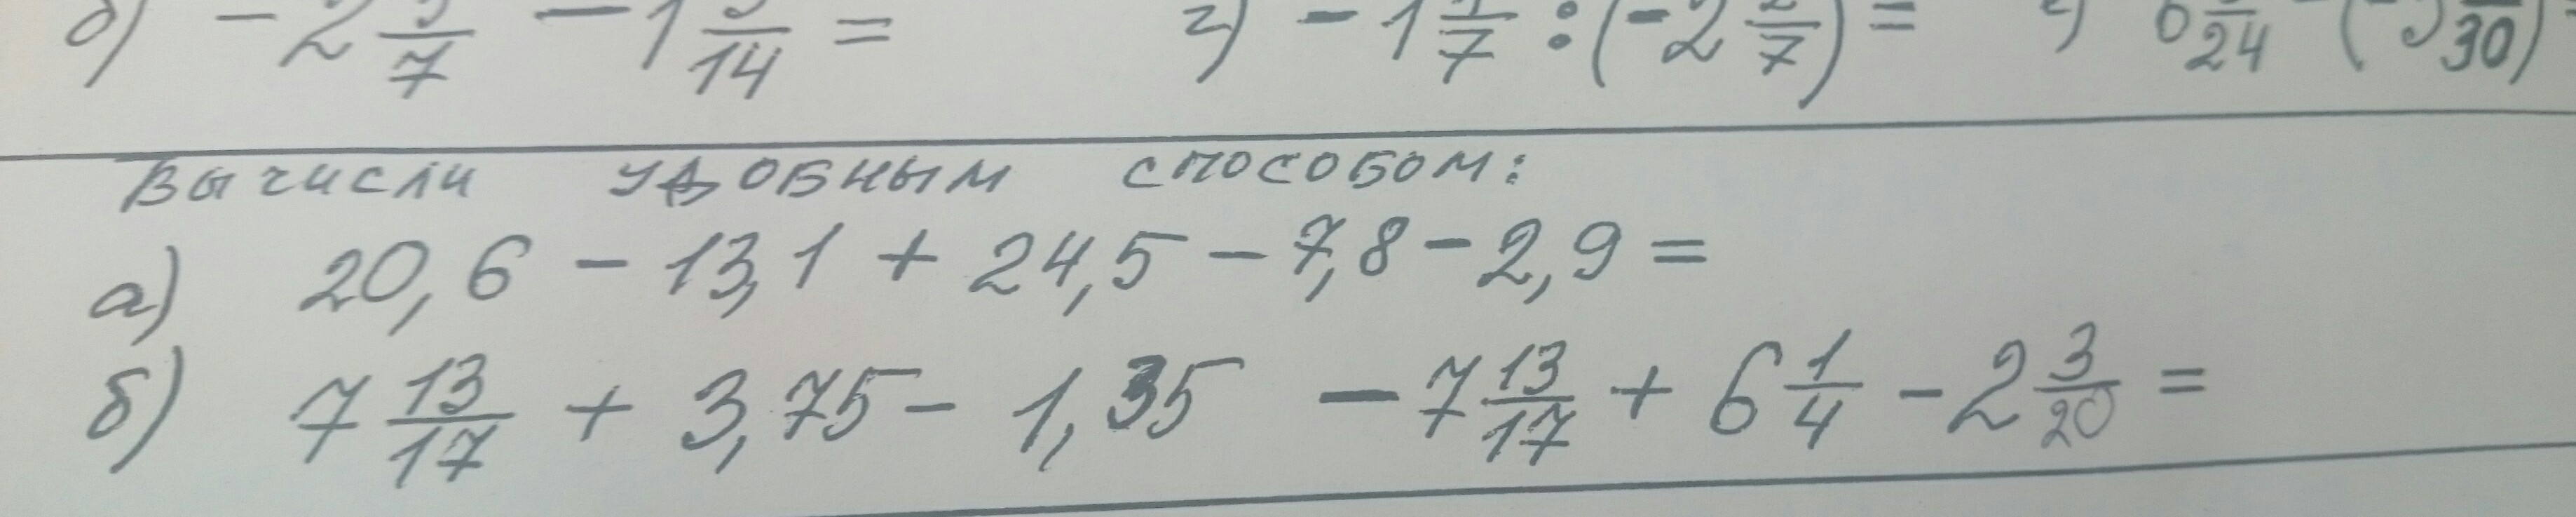 б) - 2 /7 - 1 /14 = г) - 1 /7 : (-2 /7) = 6 /24 - (- /30)
Вычисли удобным способом:
а) 20,6 - 13,1 + 24,5 - 7,8 - 2,9 =
б) 7 13/17 + 3,75 - 1,35 - 7 13/17 + 6 1/4 - 2 3/20 =